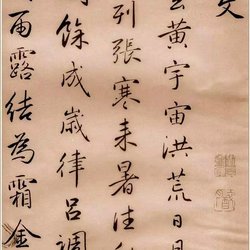 文
玄黄宇宙洪荒日月
列張寒来暑往秋
餘成嵗律吕調
雨露結為霜金